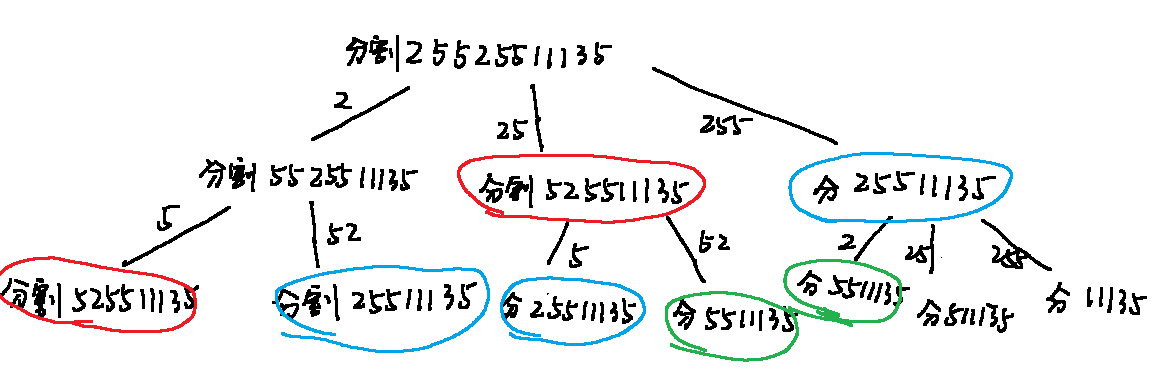 分割 25525511135
2
25
255
分割 5525511135
分割 525511135
分 25511135
5
52
5
52
2
25
255
分割 525511135
分割 25511135
分 25511135
分 5511135
分 5511135
分 511135
分 11135